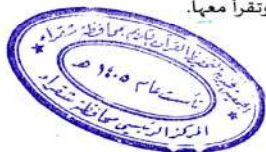 وتقرأ معها.
الجمعية الخيرية لتحفيظ القرآن الكريم بمحافظة شقراء
تأسست عام ١٤٠٥ هـ
المركز الرئيسي محافظة شقراء